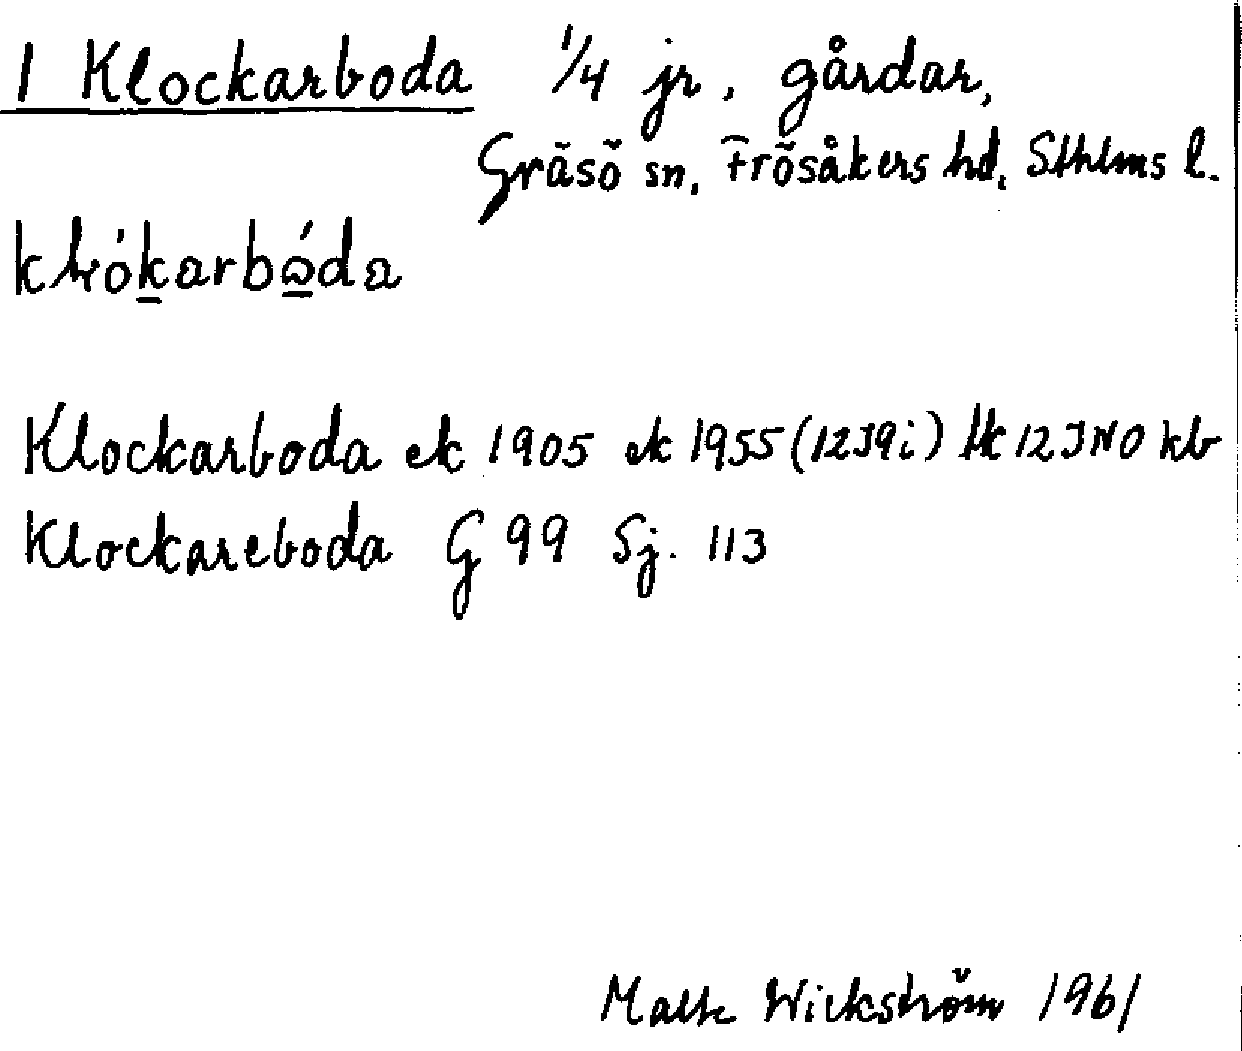 1 Klockarboda 1/4 jr, gårdar,
Gräsö sn, Frösåkers hd, Sthlms l.
Klockarboda ek 1905 ek 1955 (12J9i) tk 12J NO kb
Klockareboda G 99 Sj. 113
Malte Wickström 1961